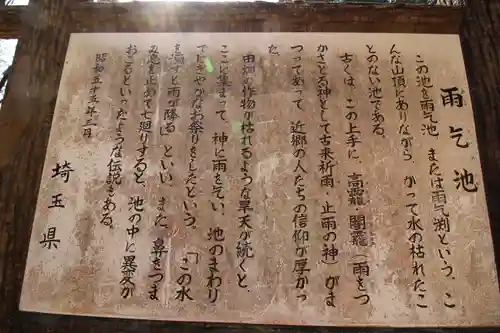 雨乞池
この池を雨乞池 または雨乞渕という、こ
んな山頂にありながら、かつて水の枯れたこ
とのない池である。
古くは、この上手に、高龗 闇龗（雨をつ
かさどる神として古来祈雨、止雨の神）がま
つってあって、近郷の人たちの信仰が厚かっ
た。
田畑の作物が枯れるような旱天が続くと、
ここに集まって、神に雨を乞い、池のまわり
でにぎやかなお祭りをしたという。「この水
を濁すと雨が降る」といい、また、鼻をつま
み息を止めて七廻りすると、池の中に異変が
おこるといったような伝説もある。
昭和五十五年三月
埼玉県